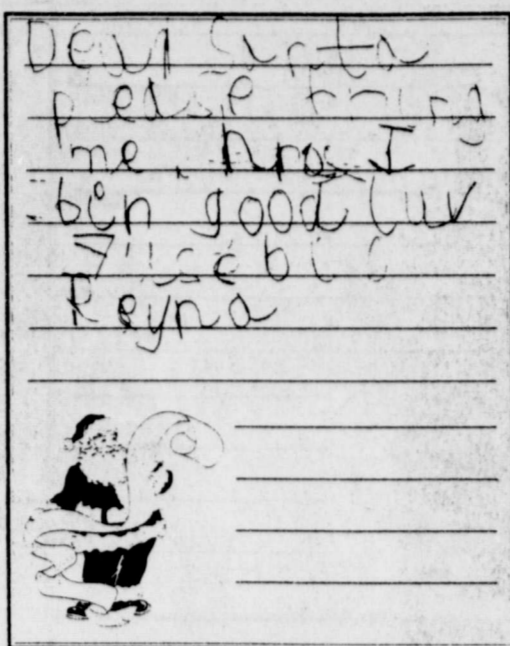 Dear Santa
please bring
me. I
bin good luv
Reyna